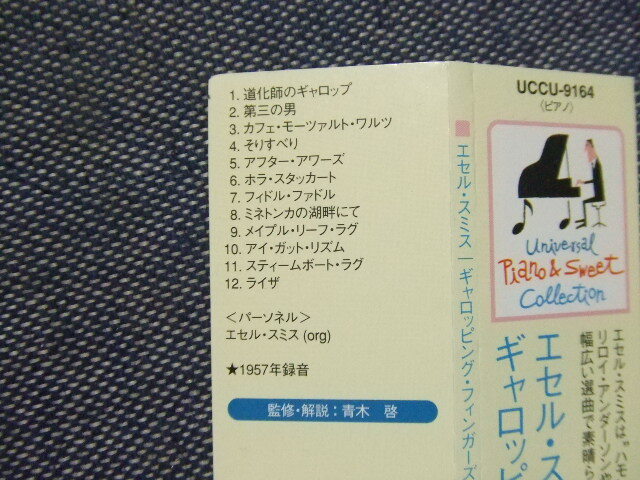 1. 道化師のギャロップ
2. 第三の男
3. カフェ・モーツァルト・ワルツ
4. そりすべり
5. アフター・アワーズ
6. ホラ・スタッカート
7. フィドル・ファドル
8. ミネトンカの湖畔にて
9. メイプル・リーフ・ラグ
10. アイ・ガット・リズム
11. スティームボート・ラグ
12. ライザ
＜パーソネル＞
エセル・スミス (org)
★1957年録音
監修・解説：青木　啓
エセル・スミス｜ギャロッピング・フィンガーズ
UCCU-9164
〈ピアノ〉
Universal
Piano & Sweet
Collection
エセル・スミスは“ハモ
リロイ・アンダーソンや
幅広い選曲で素晴ら
エセル・ス
ギャロッピ